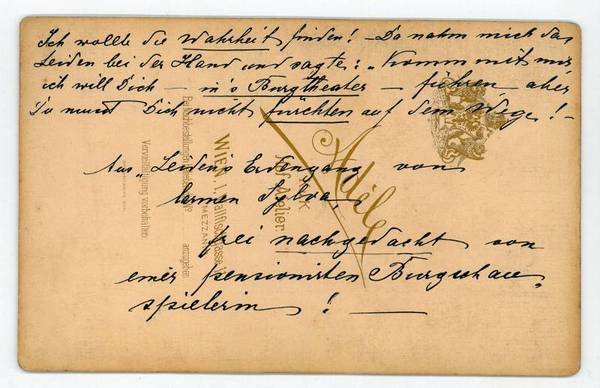 Ich wollte die Wahrheit finden! – Da nahm mich das
Leiden bei der Hand und sagte: „Komm mit mir
ich will Dich – in's Burgtheater – führen – aber
Du musst Dich nicht fürchten auf dem Wege! –
Aus „Leidens Erdengang" von
Carmen Sylva,
frei nachgedacht von
einer pensionirten Burgschau-
spielerin! —
Adèle
k.k. Hof-Atelier
WIEN, I. Wallfischgasse
MEZZANIN
angegeben
Vervielfältigung vorbehalten